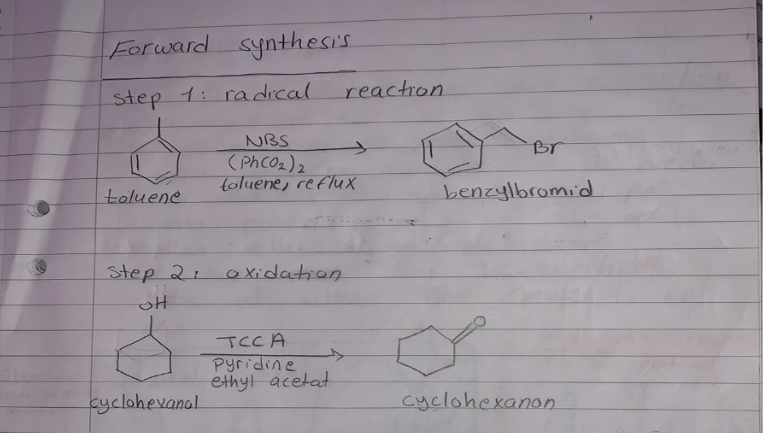 Forward synthesis
step 1: radical reaction
NBS
(PhCO₂)₂
toluene, reflux
Br
toluene
benzylbromid
step 2: oxidation
OH
TCCA
pyridine
ethyl acetat
O
cyclohexanol
cyclohexanon